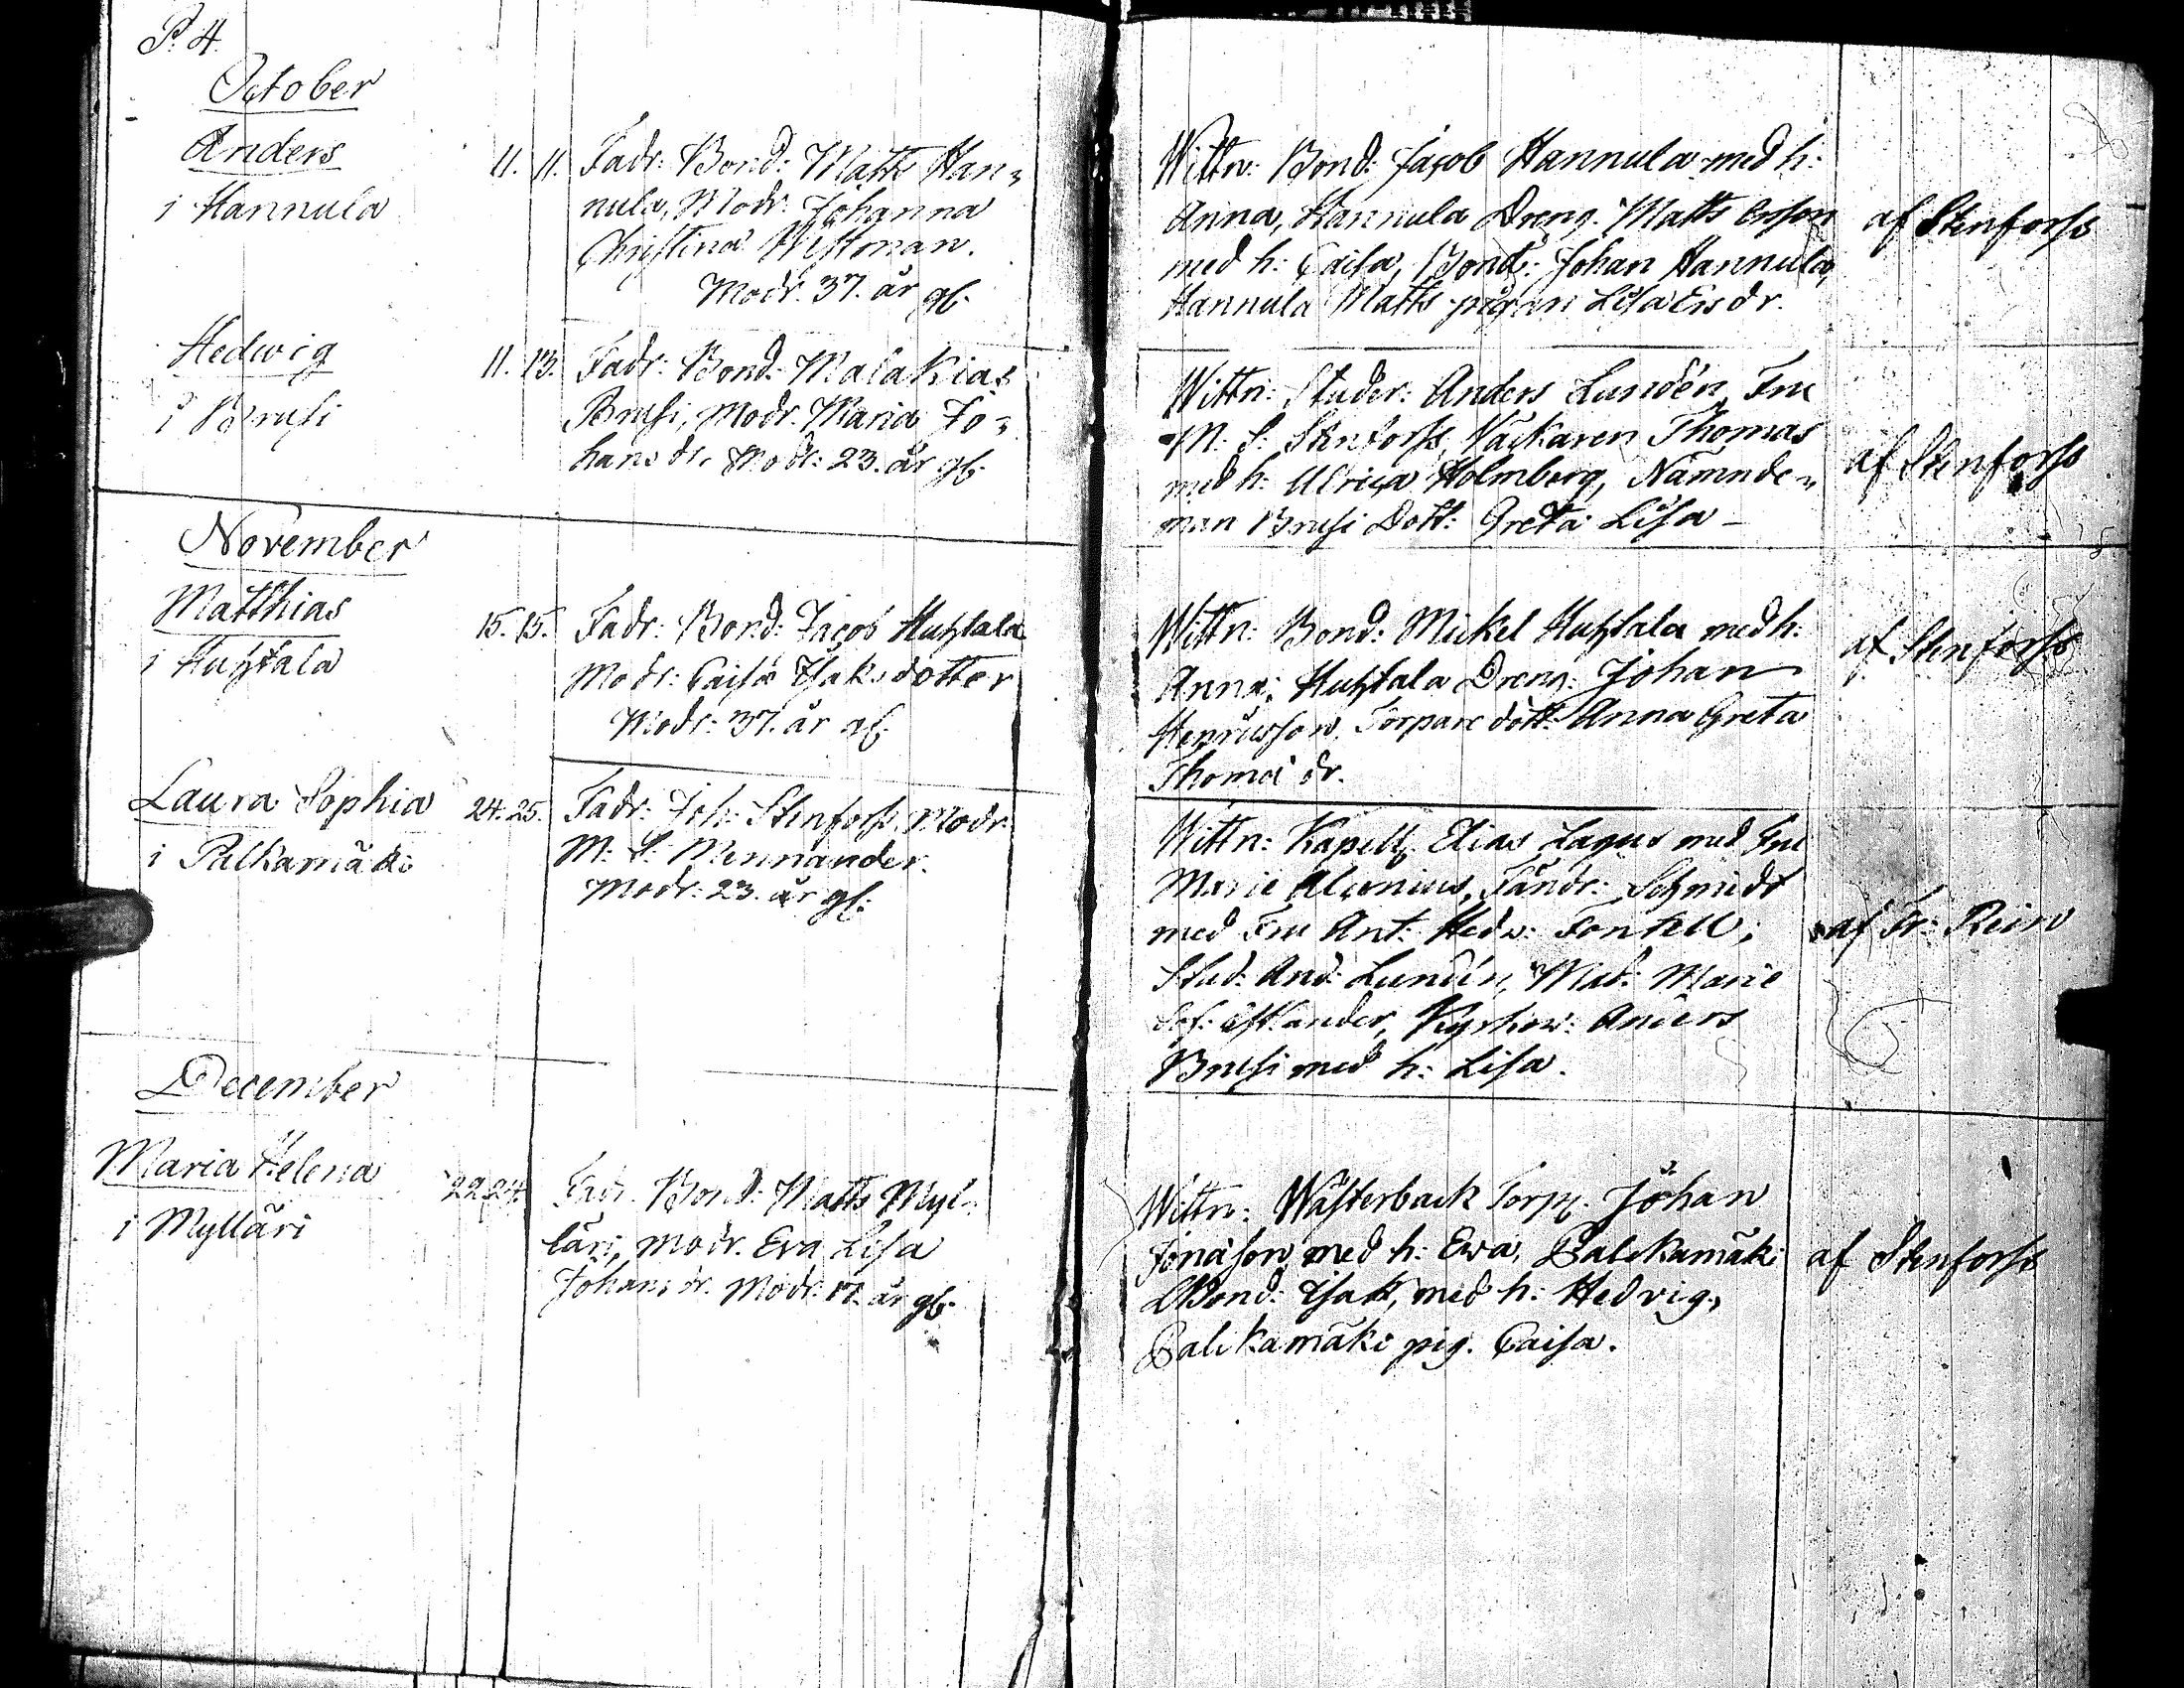 P. 4.
October
Anders
i Hannula
11. 11.
Fadr: Bond: Matts Han„
nula, Modr. Johanna
Christina Westman.
Modr. 37. år gl.
Wittn: Bond: Jacob Hannula med h:
Anna, Hannula Dreng. Matts Ersson
med h: Caisa, Bond: Johan Hannula,
Hannula Matts pigan Lisa Ersdr.
af Stenforss
Hedwig
i Brusi
11. 13.
Fadr: Bond: Malakias
Brusi, Modr. Maria Jo„
hansdr. Modr: 23. år gl.
Wittn: Studer: Anders Lundén, Fru
M: S: Stenforss, Väckaren Thomas
med h: Ulrica Holmberg, Nämnde„
man Brusi Dott: Greta Lisa –
af Stenforss
November
Matthias
i Huhtala
15. 15.
Fadr: Bond: Jacob Huhtala
Modr: Caisa Isaksdotter
Modr: 37. år gl.
Wittn: Bond: Mickel Huhtala med h:
Anna; Huhtala Dreng: Johan
Henricsson. Torpare dott: Anna Greta
Thomædr.
af Stenforss
Laura Sophia
i Palkamäki
24. 25.
Fadr: Joh: Stenforss, Modr.
M: S: Mennander.
Modr: 23. år gl:
Wittn: Kapell. Elias Lagus med Fru
Marie Alcenius, Fändr: Schmidt
med Fru Ant: Hedv: Fontell;
Stud: And: Lundén, Mad: Marie
Sof: Kyrkov: Anders
Brusi med h: Lisa.
af Fr: Rein
December
Maria Helena
i Mylläri
22. 24.
Fadr. Bond: Matts Myl„
läri, Modr. Eva Lisa
Johansdr. Modr: 17. år gl.
Wittn: Wästerback Torp. Johan
Jonasson med h: Ewa, Palckamäki
Bond: Isak, med h: Hedvig,
Palckamäki pig. Caisa.
af Stenforss